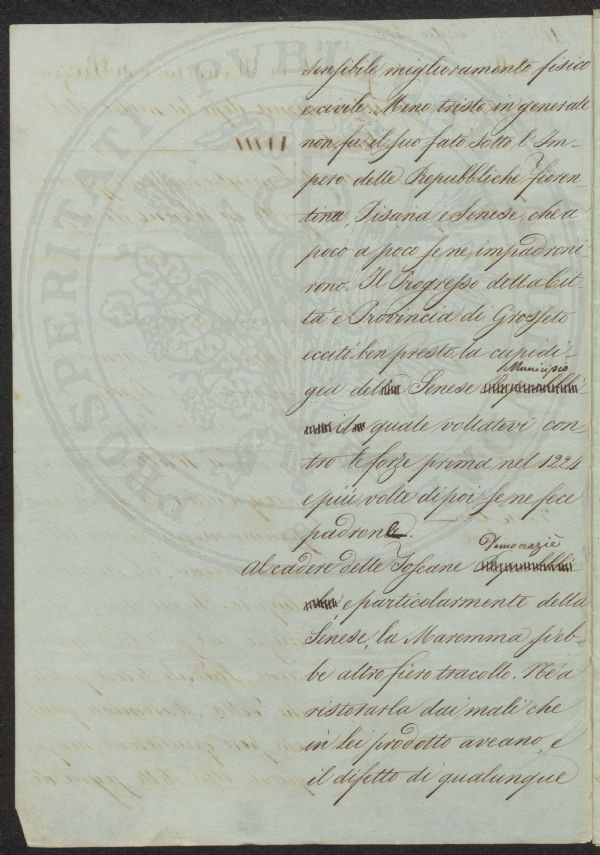 sensibile miglioramento fisico
e civile. Meno tristo in generale
non fu il suo fato sotto l'Im-
pero delle Repubbliche fioren-
tina, Pisana e Senese, che a
poco a poco se ne impadroni
rono. Il Progresso della Cit-
tà e Provincia di Grosseto
eccitò ben presto la cupidi-
Municipio
gia del Senese
il quale voltatevi con
tro le forze prima nel 1224
e più volte di poi se ne fece
padrone.
Democrazie
Al cadere delle Toscane
e particolarmente della
Senese, la Maremma s'eb-
be altro fiero tracollo. Nè a
ristorarla dai mali che
in lei prodotto aveano, e
il difetto di qualunque
PROSPERITATI PUBL